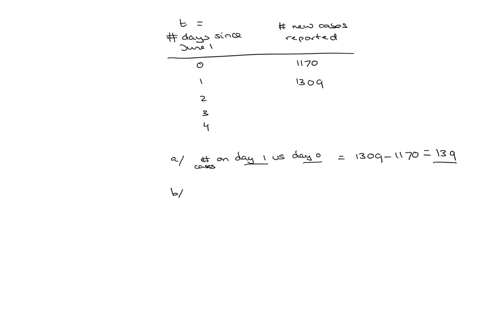 t =
# days since
June 1
# new cases
reported
0 1170
1 1309
2
3
4
a/ # cases on day 1 vs day 0 = 1309 - 1170 = 139
b/